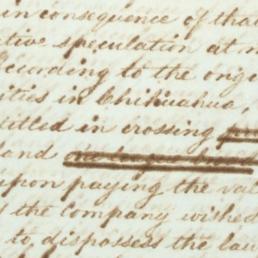 in consequence of that
ative speculation at m
According to the orig
ities in Chihuahua,
titled in crossing
land
upon paying the val
the company wished
to dispossess the law